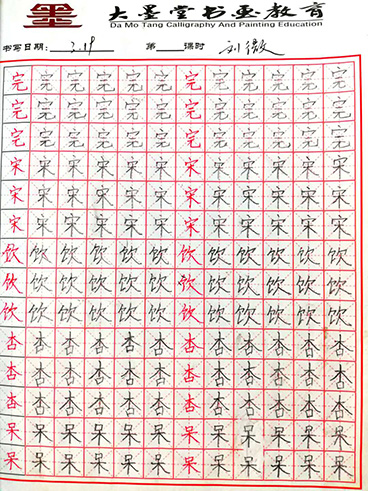 墨 大墨堂书画教育
Da Mo Tang Calligraphy And Painting Education
书写日期: 3.19 第 课时 刘微
完完完完完完完完完完完完
完完完完完完完完完完完完
完完完完完完完完完完完完
宋宋宋宋宋宋宋宋宋宋宋宋
宋宋宋宋宋宋宋宋宋宋宋宋
宋宋宋宋宋宋宋宋宋宋宋宋
饮饮饮饮饮饮饮饮饮饮饮饮
饮饮饮饮饮饮饮饮饮饮饮饮
饮饮饮饮饮饮饮饮饮饮饮饮
杏杏杏杏杏杏杏杏杏杏杏杏
杏杏杏杏杏杏杏杏杏杏杏杏
杏杏杏杏杏杏杏杏杏杏杏杏
呆呆呆呆呆呆呆呆呆呆呆呆
呆呆呆呆呆呆呆呆呆呆呆呆